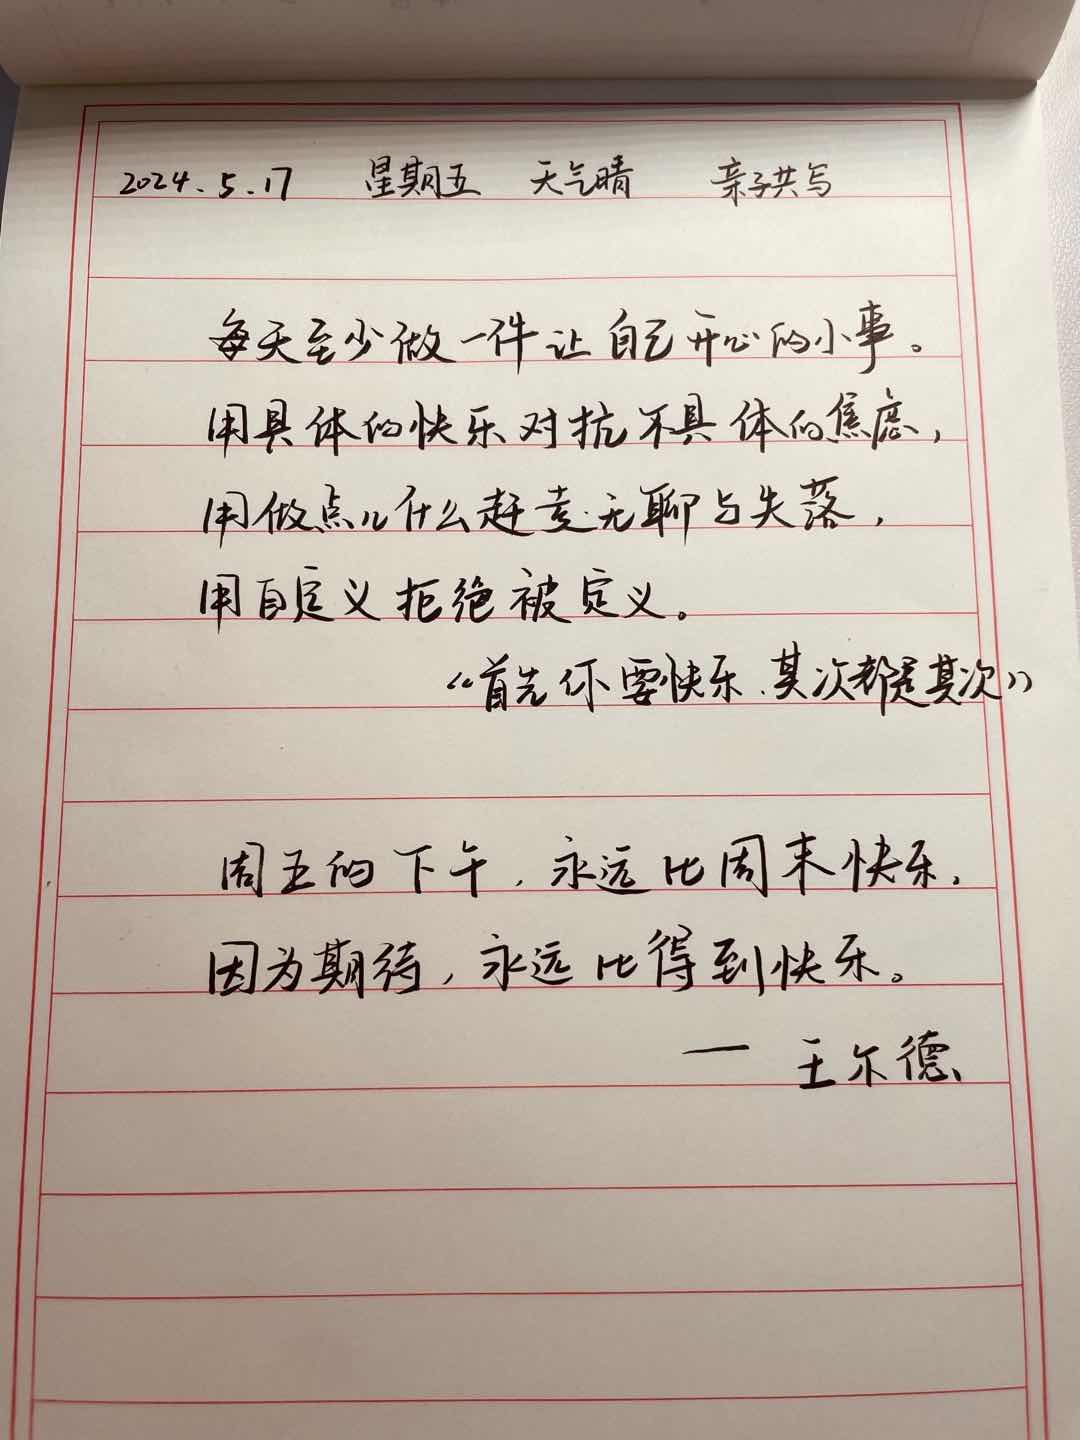 2024.5.17 星期五 天气晴 亲子共写
每天至少做一件让自己开心的小事。
用具体的快乐对抗不具体的焦虑，
用做点儿什么赶走无聊与失落，
用自定义拒绝被定义。
《首先你要快乐、其次都是其次》
周五的下午，永远比周末快乐，
因为期待，永远比得到快乐。
— 王尔德